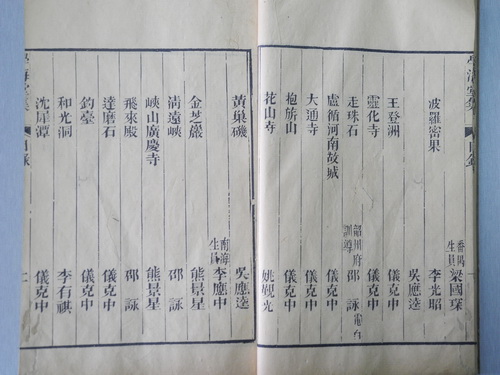 學海堂集 目錄
番禺生員 梁國琛
波羅密果 李光昭
吳應逵
王登洲 儀克中
靈化寺 儀克中
走珠石 韶州府訓導 邵詠 電白
盧循河南故城 儀克中
大通寺 儀克中
抱旂山 儀克中
花山寺 姚觀光
黃巢磯 吳應逵
南海生員 李應中
金芝巖 熊景星
清遠峽 邵詠
峽山廣慶寺 熊景星
飛來殿 邵詠
達磨石 儀克中
釣臺 儀克中
和光洞 李有祺
沈犀潭 儀克中
學海堂集 目錄 二